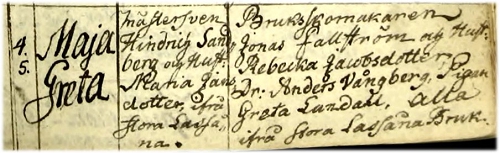 4.
5.
Maja
Greta
mästersven
Hindrig Sand
berg og Hust.
Maria Jans
dotter, ifrå
stora Lasså
na.
Bruksskomakaren
Jonas Fallström og Hust.
Rebecka Jacobsdotter,
Dr. Anders Vångberg, Pigan
Greta Lundall, alla
ifrå stora Lassåna Bruk.